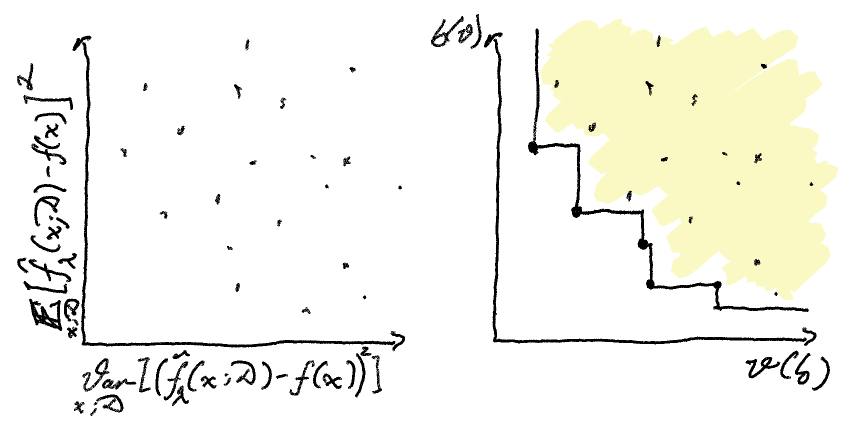 𝔼_{x;𝒟}[f̂_λ(x;𝒟)-f(x)]²
Var_{x;𝒟}[(f̂_λ(x;𝒟)-f(x))²]
b(v)
v(b)